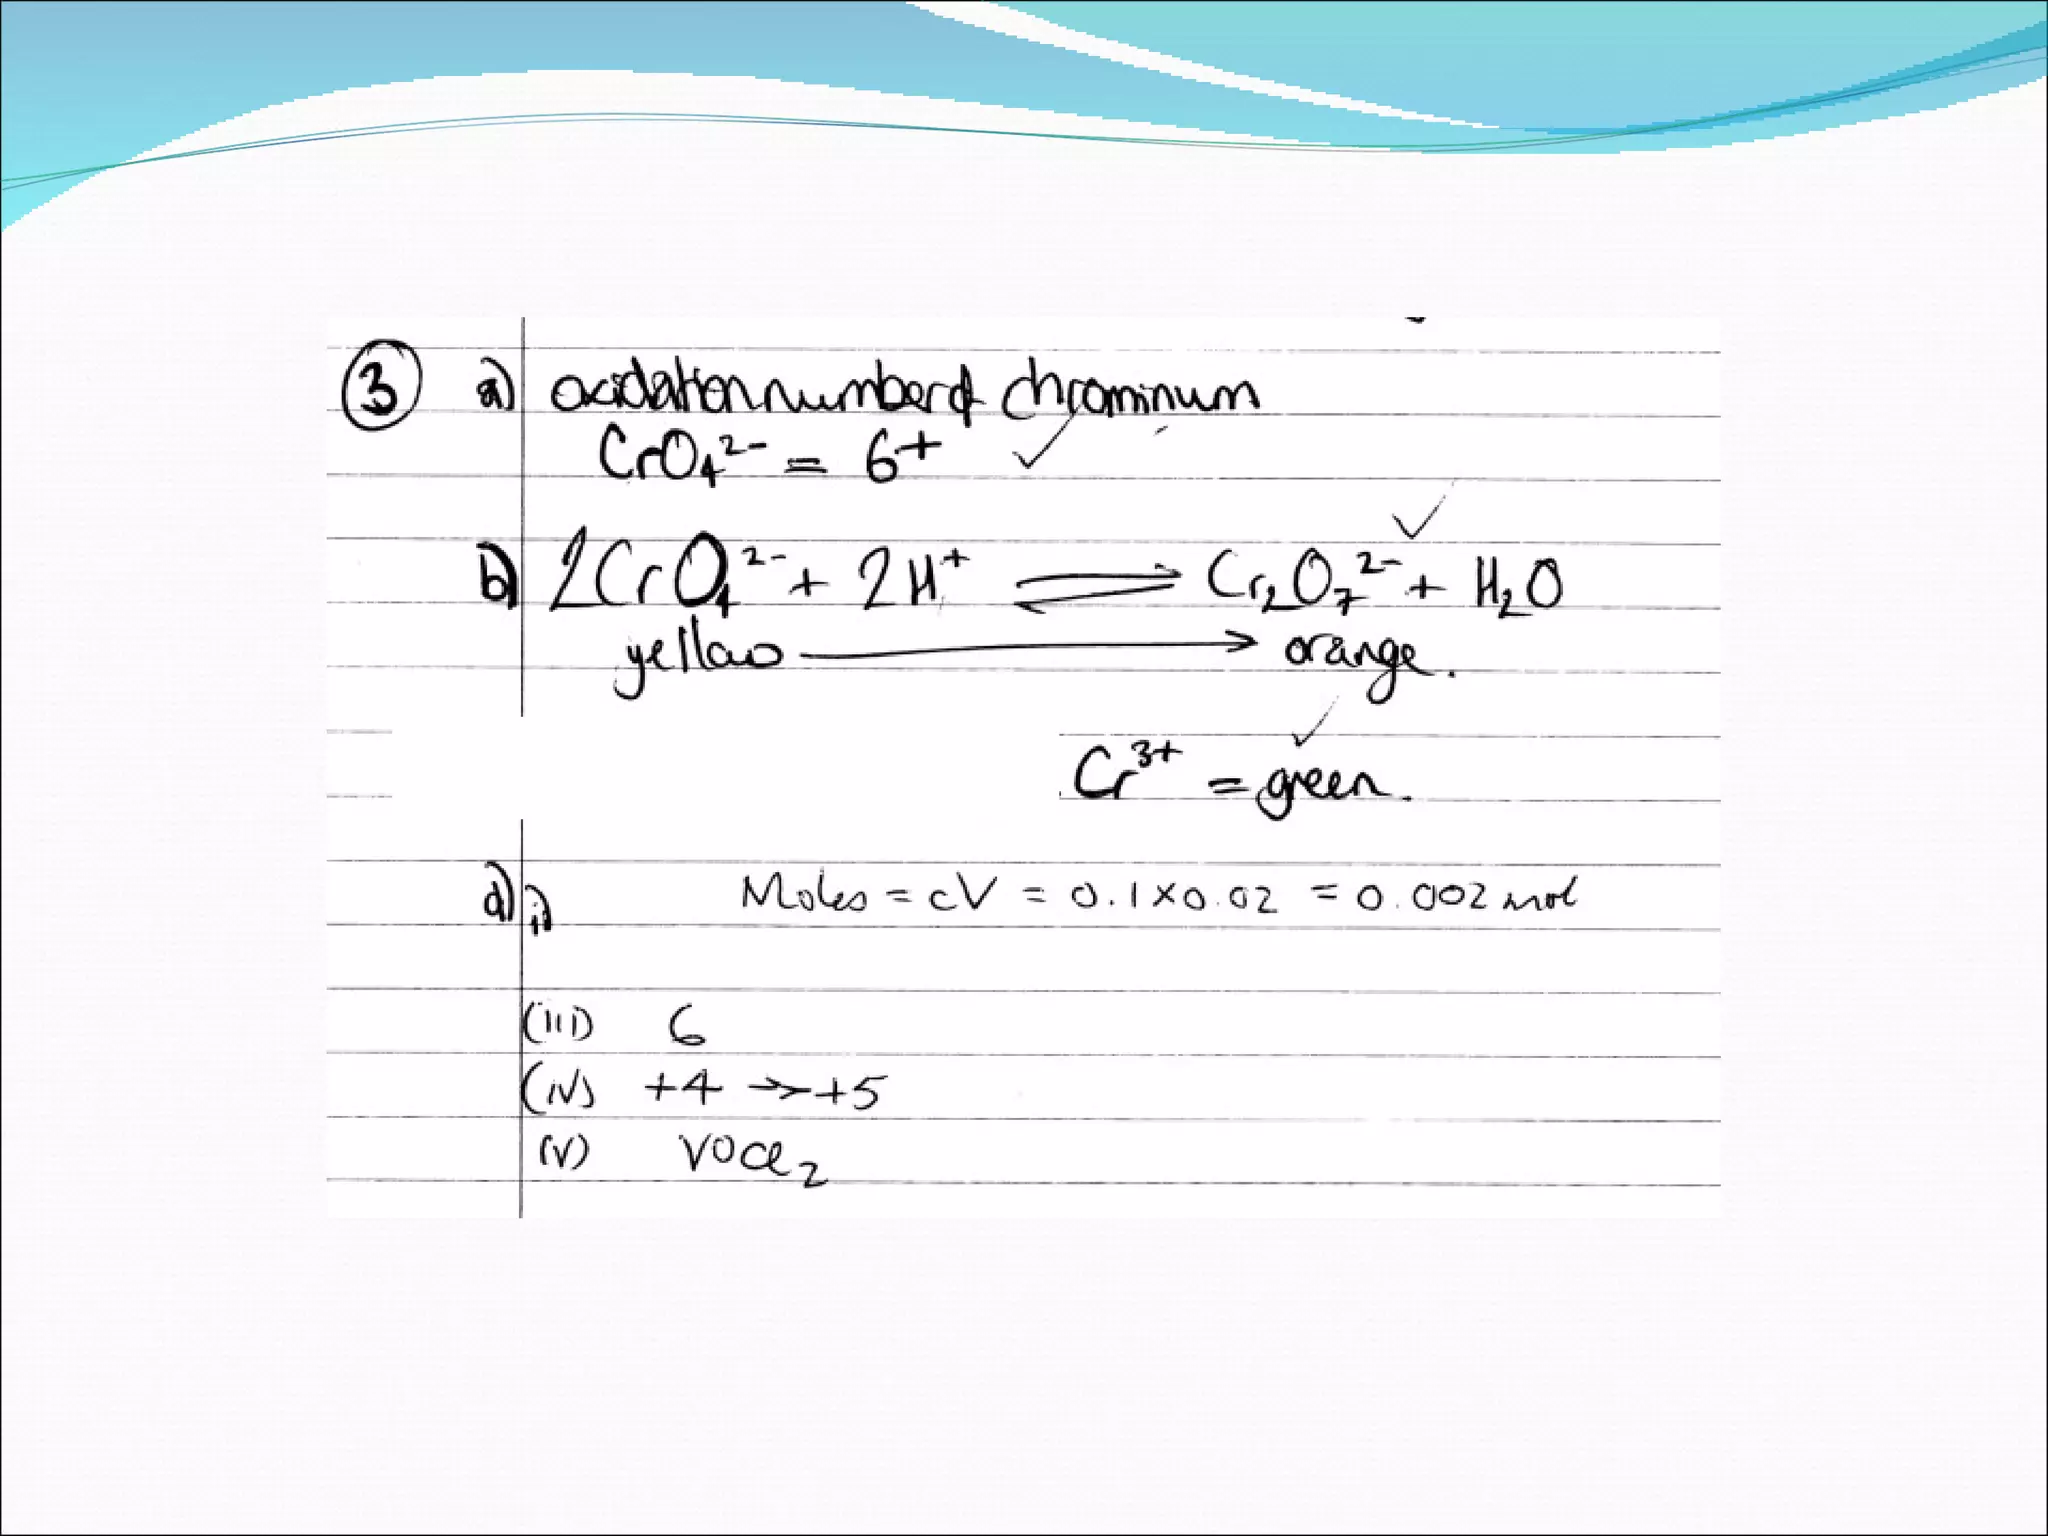 ③ a) oxidation number of chrominum
CrO₄²⁻ = 6+ ✓
b) 2CrO₄²⁻ + 2H⁺ ⇌ Cr₂O₇²⁻ + H₂O ✓
yellow → orange.
Cr³⁺ = green. ✓
d) i) Moles = cV = 0.1 x 0.02 = 0.002 mol
(iii) 6
(iv) +4 → +5
(v) VOCl₂